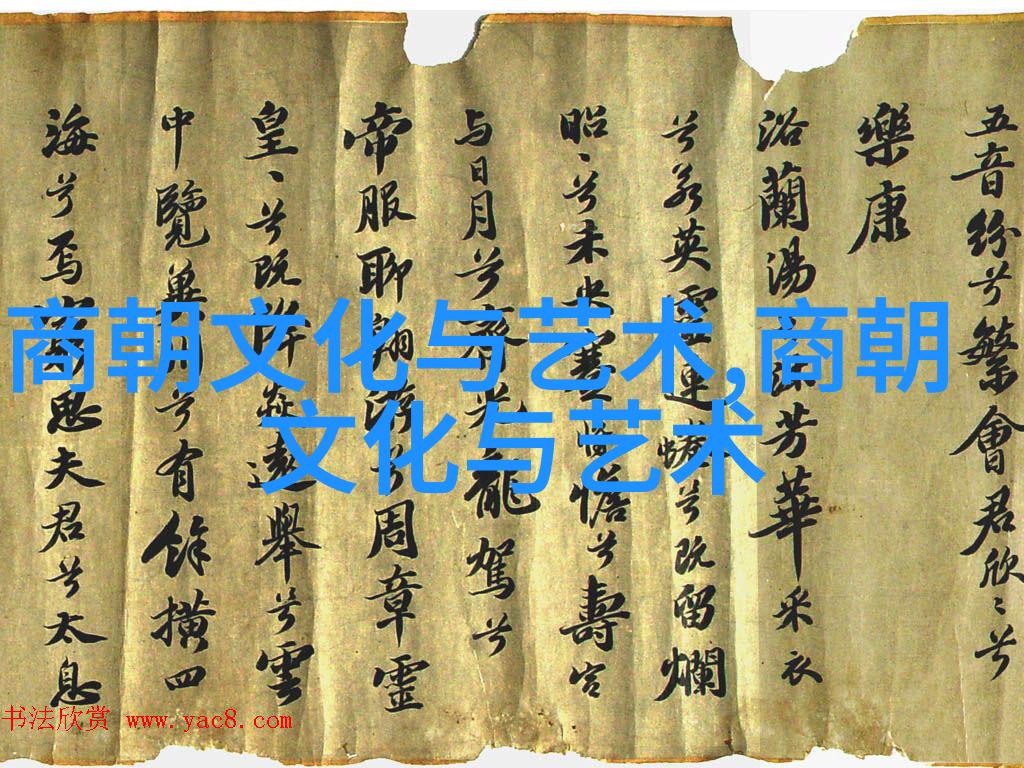 五音紛兮繁會君欣〻兮
樂康
浴蘭湯兮沐芳華采衣
兮若英靈連蜷兮既留爛
昭〻兮未央蹇將憺兮壽宮
与日月兮齊光龍駕兮
帝服聊翱游兮周章靈
皇〻兮既降猋遠舉兮雲
中覽兾州兮有餘橫四
海兮焉窮思夫君兮太息
商朝文化与艺术,商朝
文化与艺术
书法欣赏 www.yac8.com